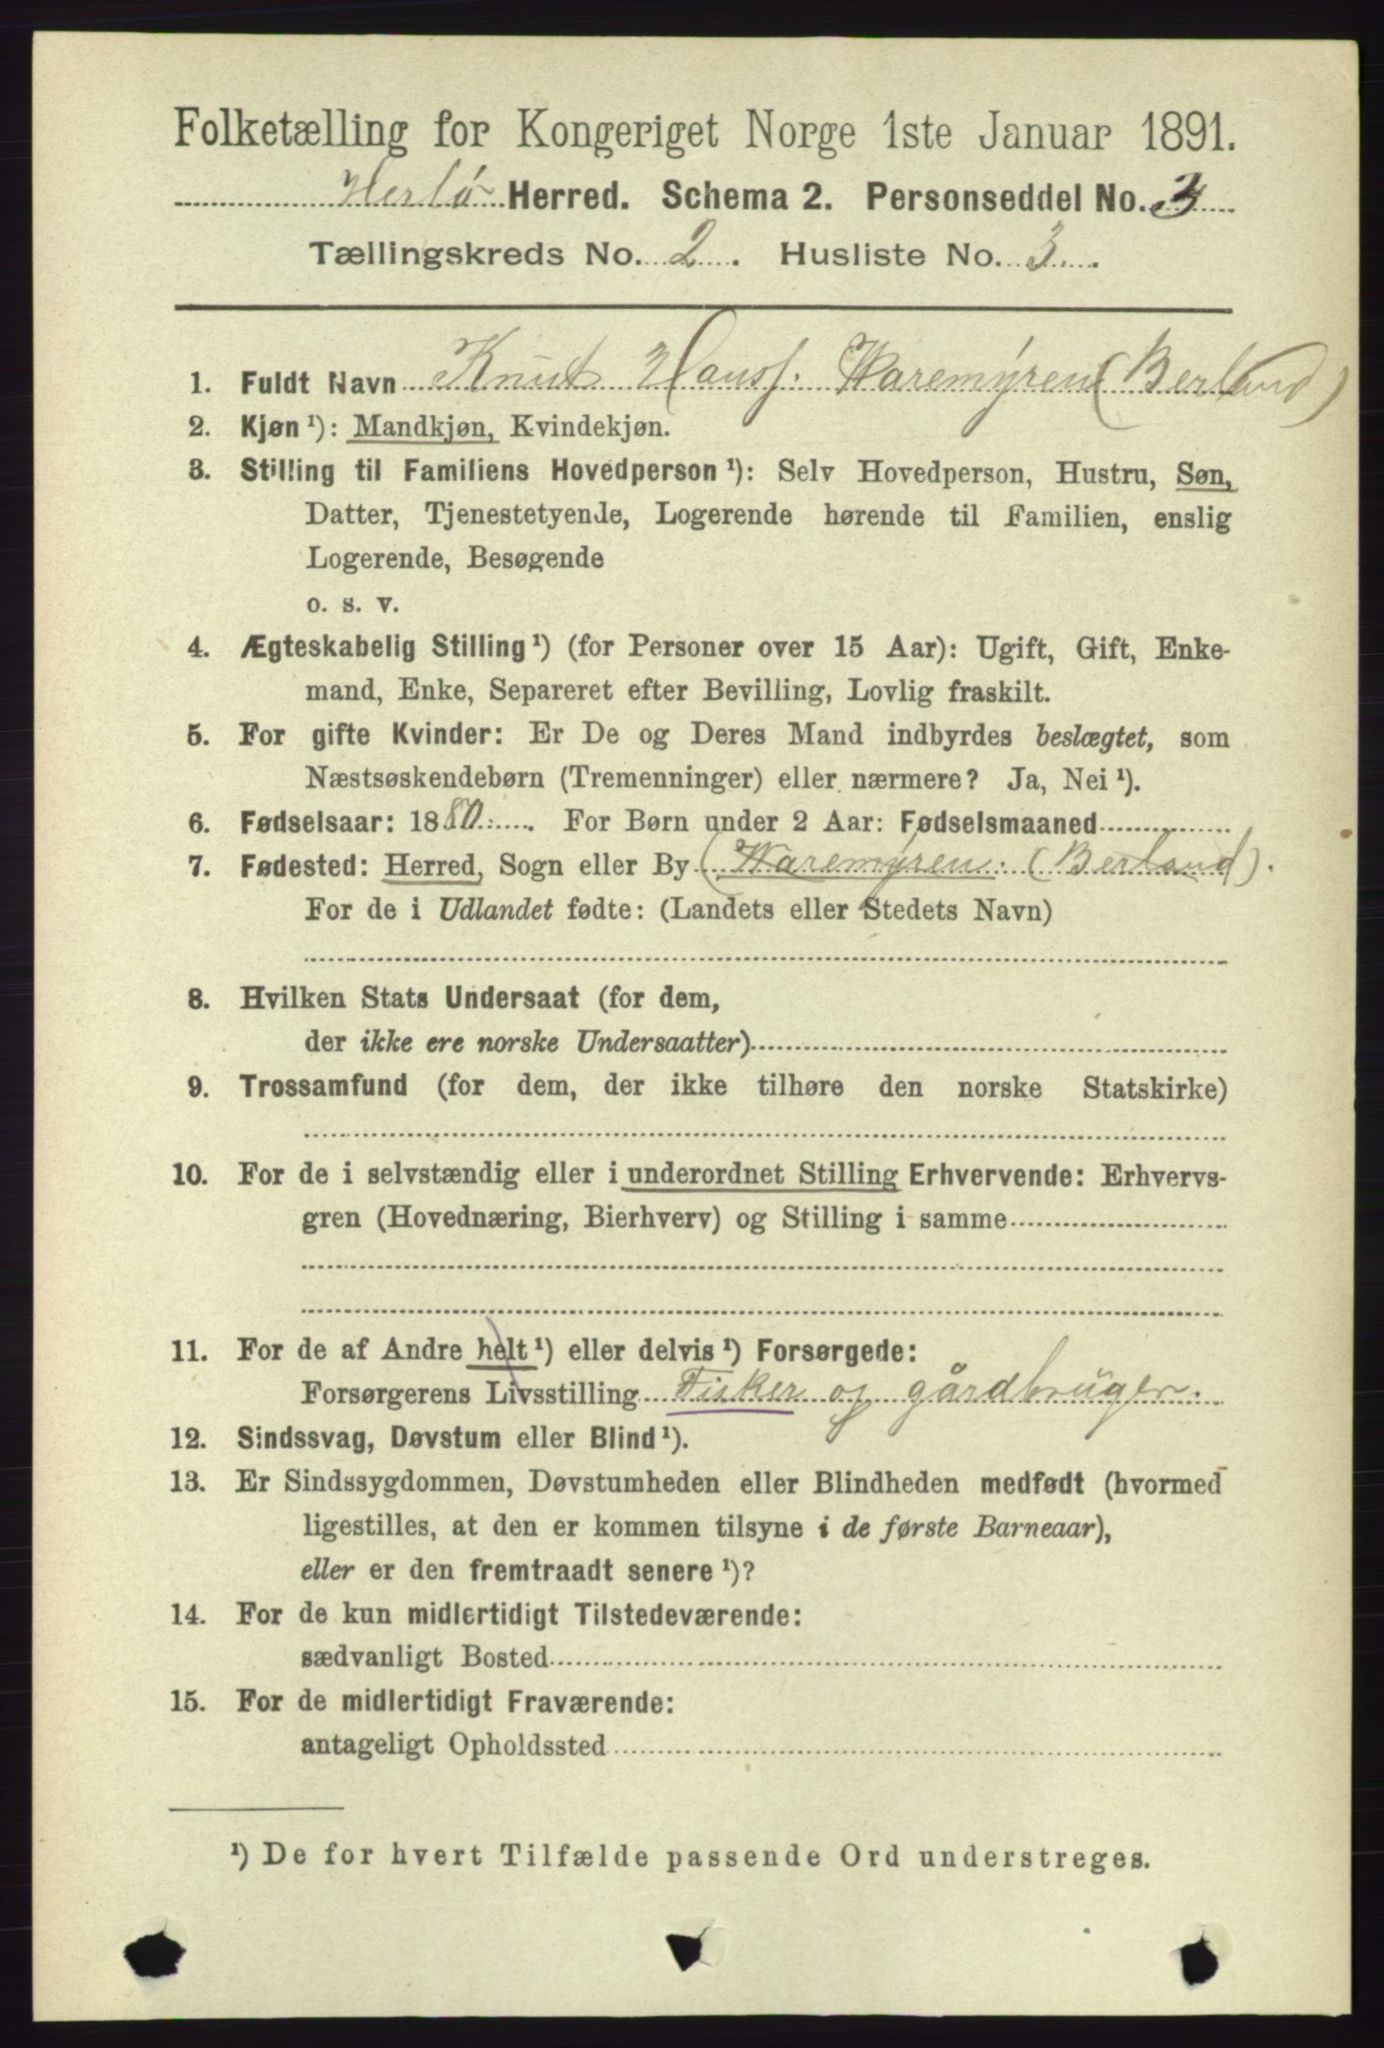 Folketælling for Kongeriget Norge 1ste Januar 1891.
Herlø Herred. Schema 2. Personseddel No. 3
Tællingskreds No. 2. Husliste No. 3.
1. Fuldt Navn Knut Hansf. Waremyren (Berland)
2. Kjøn ¹): Mandkjøn, Kvindekjøn.
3. Stilling til Familiens Hovedperson ¹): Selv Hovedperson, Hustru, Søn,
Datter, Tjenestetyende, Logerende hørende til Familien, enslig
Logerende, Besøgende
o. s. v.
4. Ægteskabelig Stilling ¹) (for Personer over 15 Aar): Ugift, Gift, Enke-
mand, Enke, Separeret efter Bevilling, Lovlig fraskilt.
5. For gifte Kvinder: Er De og Deres Mand indbyrdes beslægtet, som
Næstsøskendebørn (Tremenninger) eller nærmere? Ja, Nei ¹).
6. Fødselsaar: 1880. For Børn under 2 Aar: Fødselsmaaned
7. Fødested: Herred, Sogn eller By (Waremyren. (Berland).
For de i Udlandet fødte: (Landets eller Stedets Navn)
8. Hvilken Stats Undersaat (for dem,
der ikke ere norske Undersaatter)
9. Trossamfund (for dem, der ikke tilhøre den norske Statskirke)
10. For de i selvstændig eller i underordnet Stilling Erhvervende: Erhvervs-
gren (Hovednæring, Bierhverv) og Stilling i samme
11. For de af Andre helt ¹) eller delvis ¹) Forsørgede:
Forsørgerens Livsstilling Fisker og gårdbruger.
12. Sindssvag, Døvstum eller Blind ¹).
13. Er Sindssygdommen, Døvstumheden eller Blindheden medfødt (hvormed
ligestilles, at den er kommen tilsyne i de første Barneaar),
eller er den fremtraadt senere ¹)?
14. For de kun midlertidigt Tilstedeværende:
sædvanligt Bosted
15. For de midlertidigt Fraværende:
antageligt Opholdssted
¹) De for hvert Tilfælde passende Ord understreges.